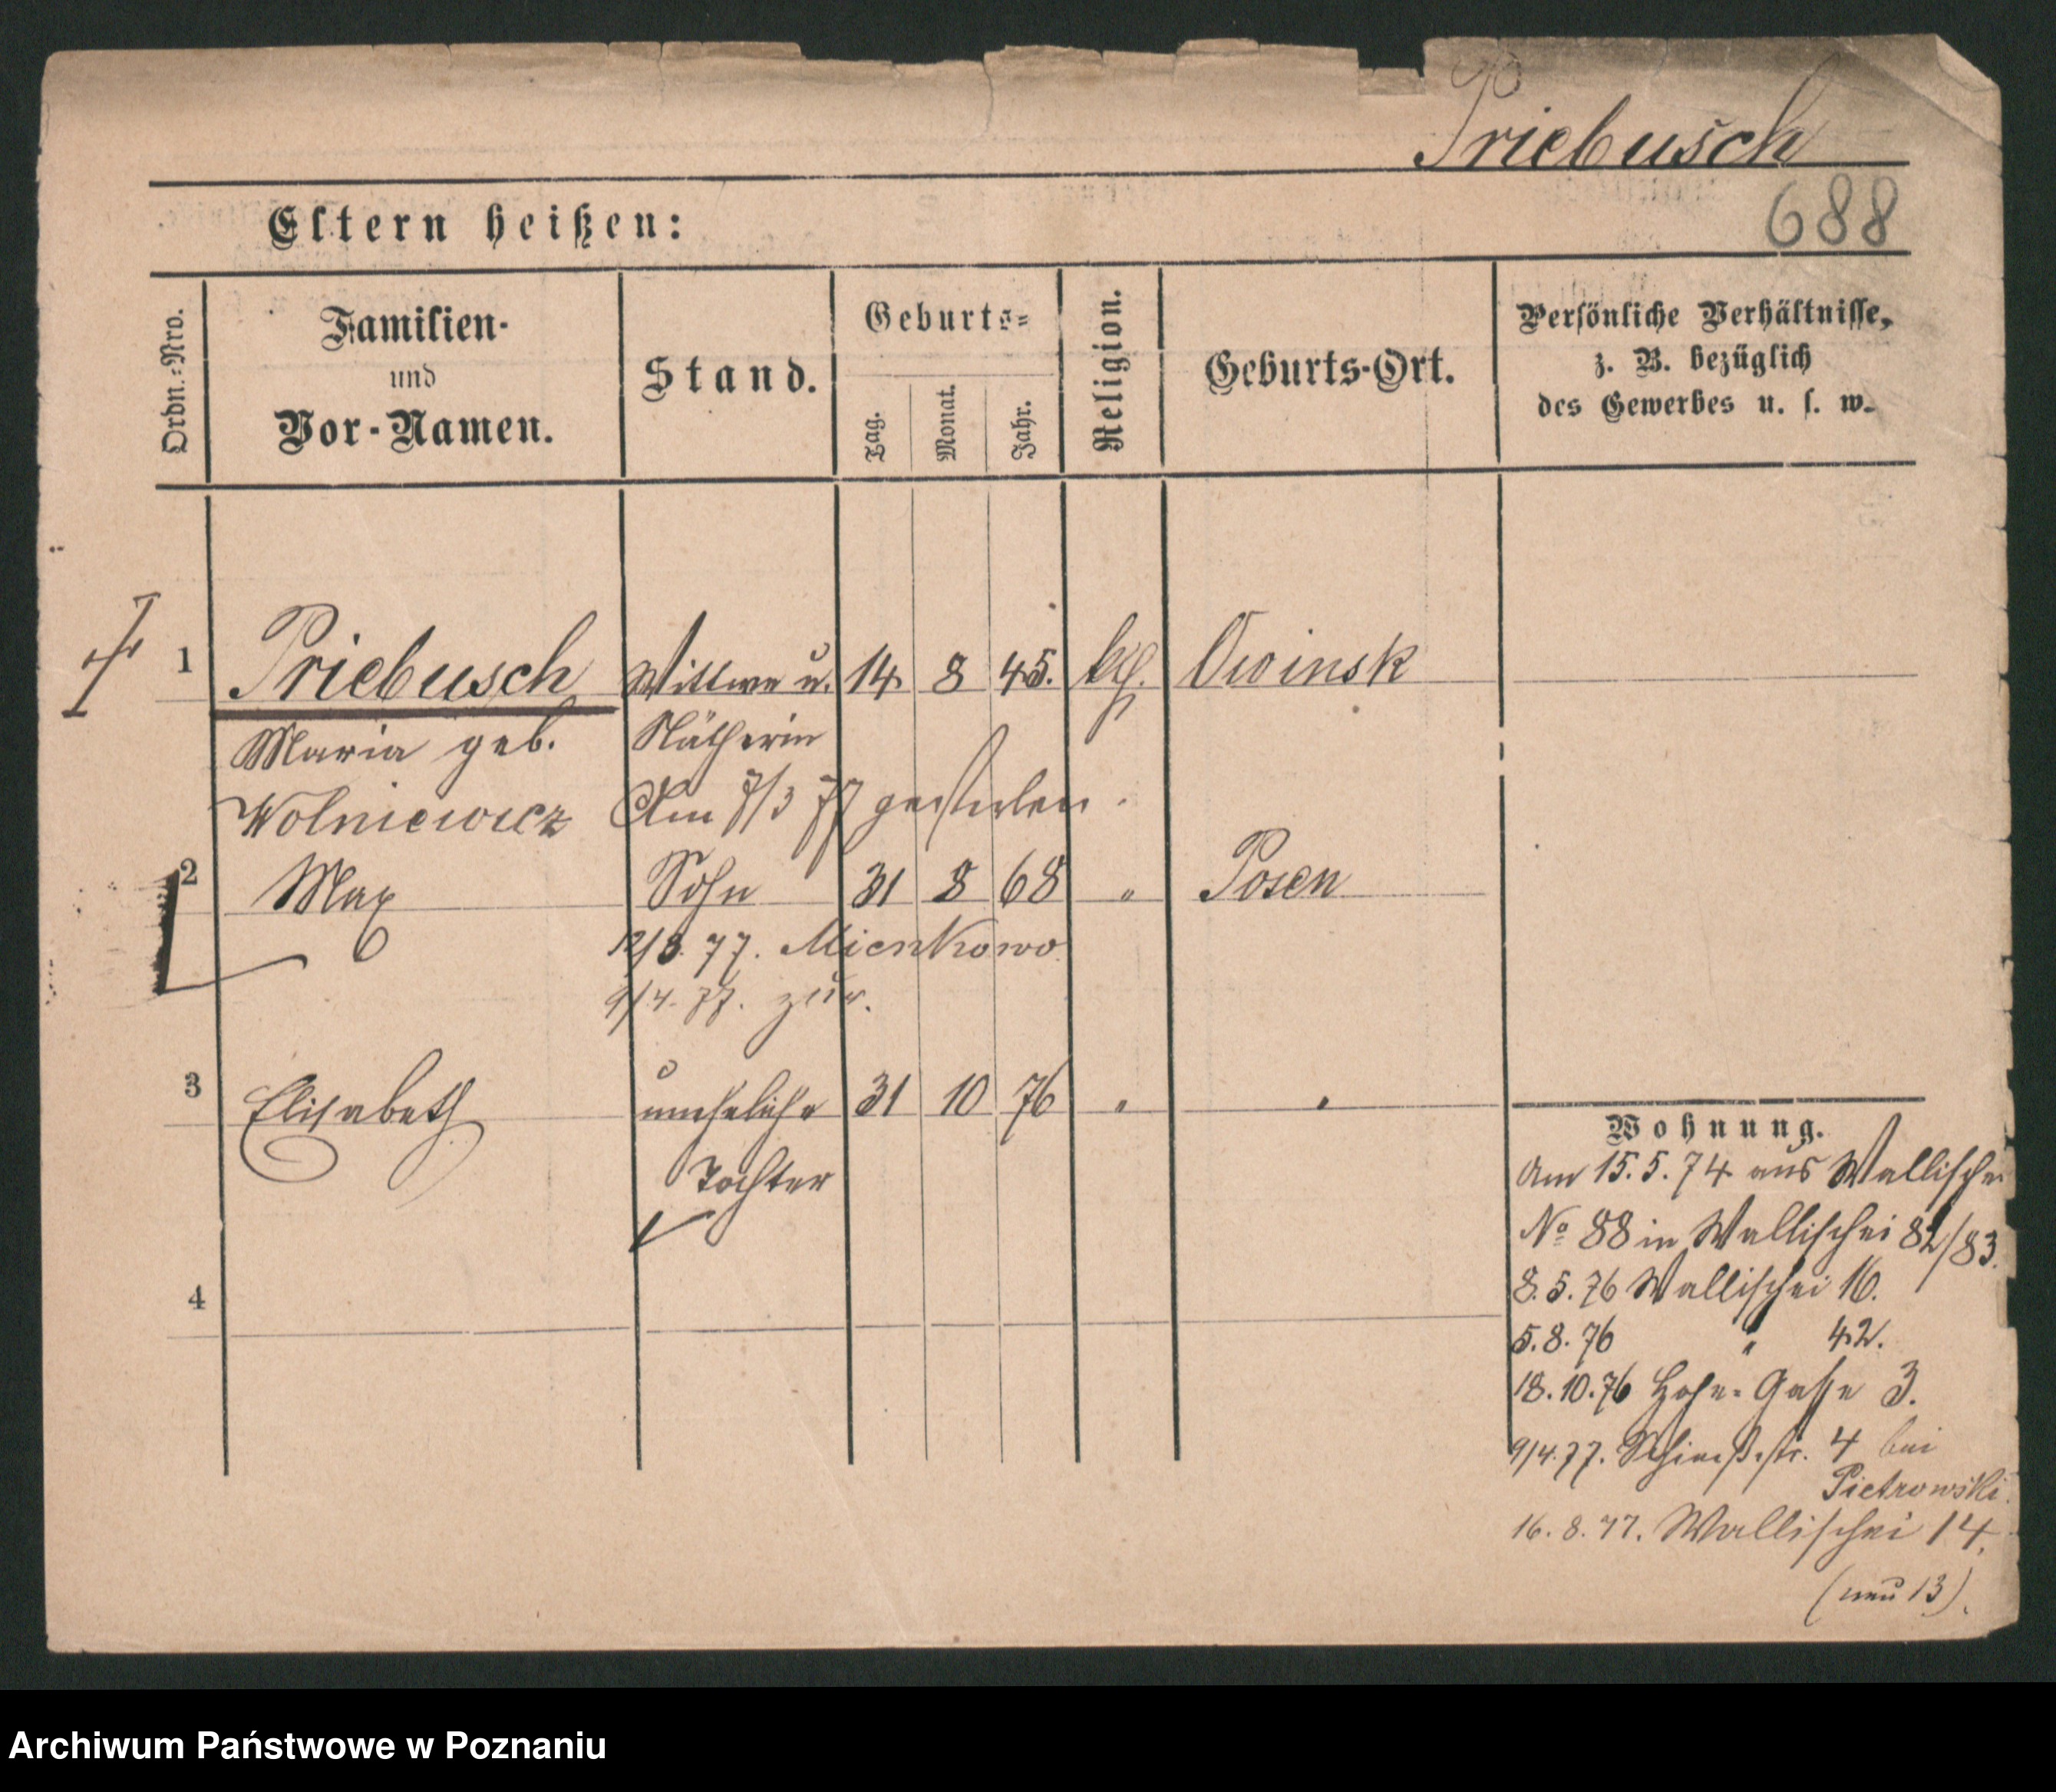 Priebusch
688
Eltern heißen:
Ordn.-Nro.
Familien-
und
Vor-Namen.
Stand.
Geburts-
Tag.
Monat.
Jahr.
Religion.
Geburts-Ort.
Persönliche Verhältnisse,
z. B. bezüglich
des Gewerbes u. s. w.
1 Priebusch Wittwe u. 14 8 45. kth. Owinsk
Maria geb. Nätherin
Wolniewicz Am 7/3 77 gestorben.
2 Max Sohn 31 8 68 " Posen
12/3. 77. Mienkowo
9/4. 77. zur.
3 Elisabeth uneheliche 31 10 76 " "
Tochter
4
Wohnung.
Am 15. 5. 74 aus Wallischei
No 88 in Wallischei 82/83.
8. 5. 76 Wallischei 16.
5. 8. 76 " 42.
18. 10. 76 Hohe-Gasse 3.
9/4. 77. Schießstr. 4 bei
Pietrowski.
16. 8. 77. Wallischei 14.
(neu 13).
Archiwum Państwowe w Poznaniu